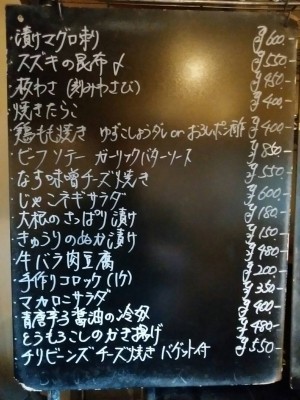 ・漬けマグロ刺 ¥600-
・スズキの昆布〆 ¥550-
・板わさ(刻みわさび) ¥450-
・焼きたらこ ¥400-
・鶏もも焼き ゆずこしょうダレorおろしポン酢 ¥400-
・ビーフソテー ガーリックバターソース ¥860-
・なす味噌チーズ焼き ¥550-
・じゃこネギサラダ ¥600-
・大根のさっぱり漬け ¥180-
・きゅうりのぬか漬け ¥150-
・牛バラ肉豆腐 ¥480-
・手作りコロッケ(1ケ) ¥200-
・マカロニサラダ ¥350-
・青唐辛子醤油の冷奴 ¥400-
・とうもろこしのかき揚げ ¥480-
・チリビーンズチーズ焼き バゲット付 ¥550-